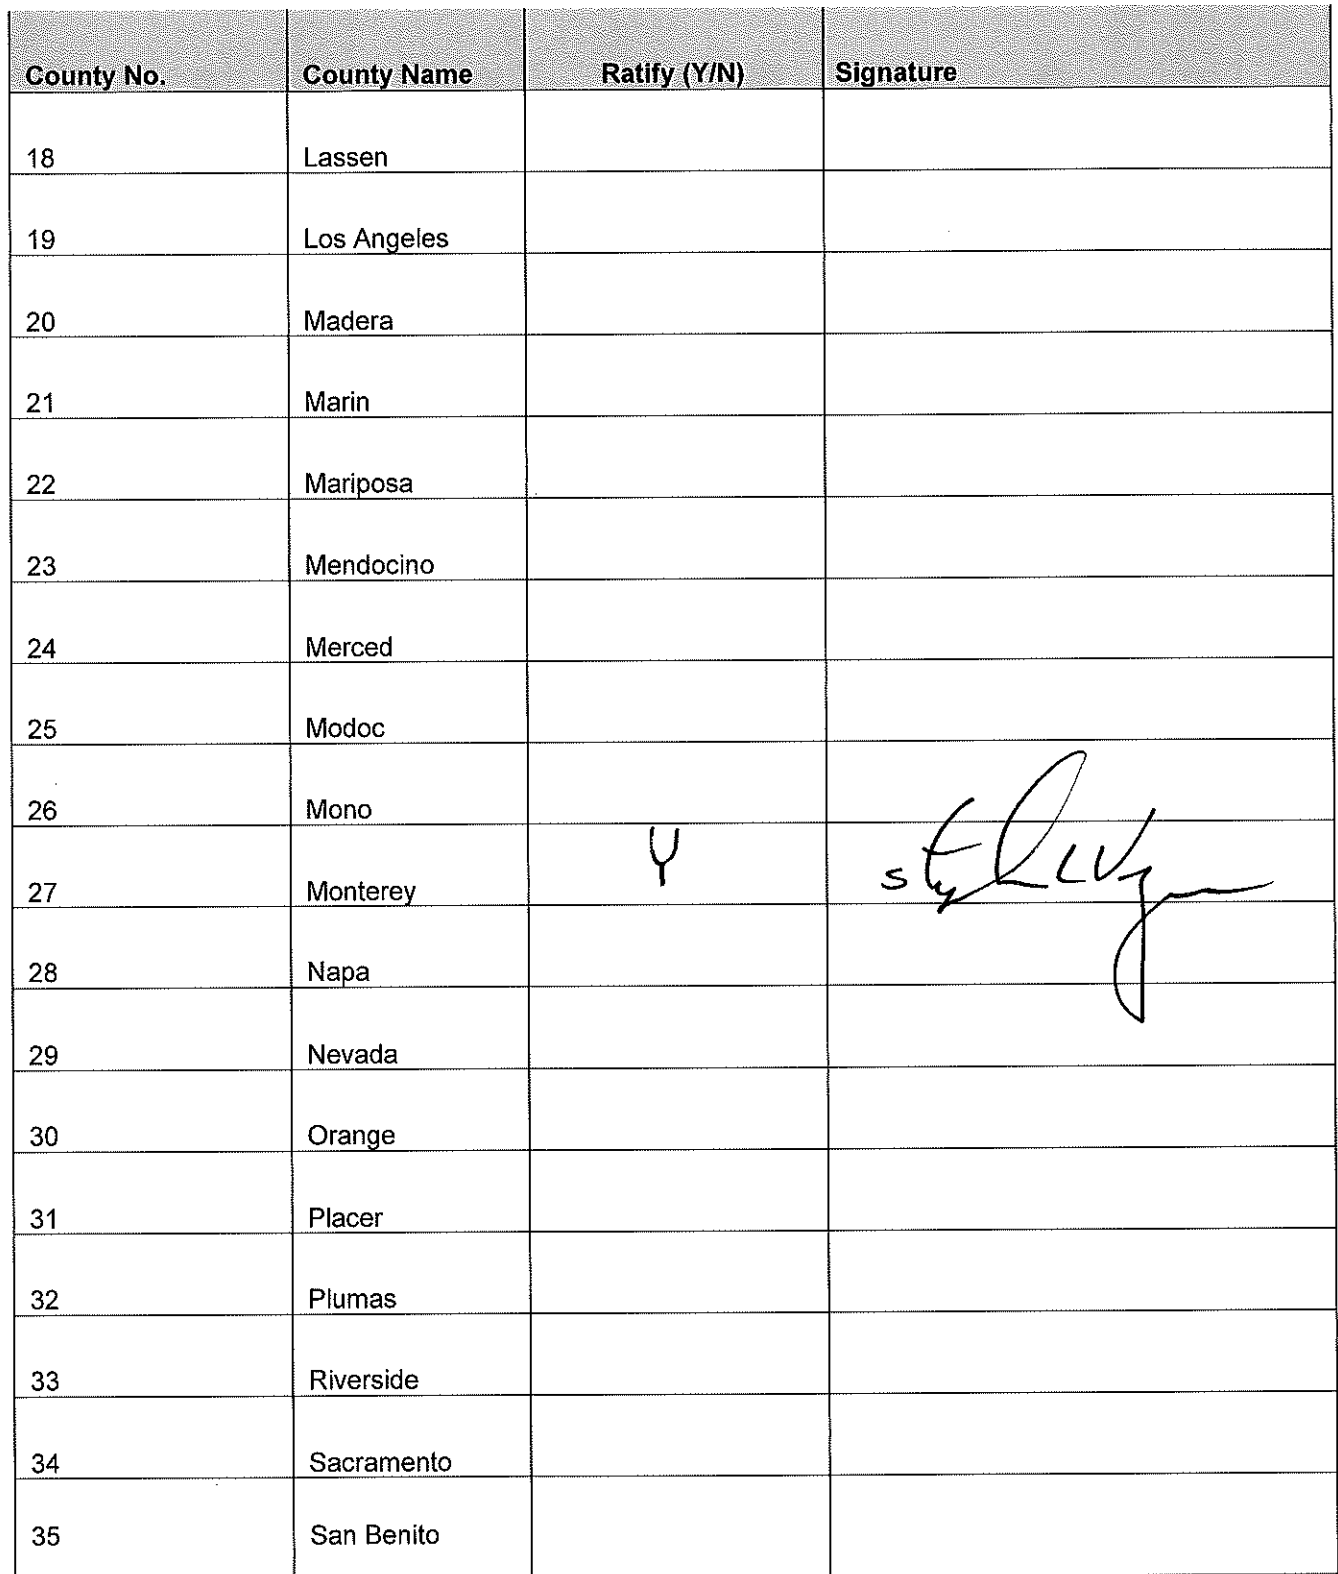 County No. County Name Ratify (Y/N) Signature
18 Lassen
19 Los Angeles
20 Madera
21 Marin
22 Mariposa
23 Mendocino
24 Merced
25 Modoc
26 Mono
27 Monterey Y
28 Napa
29 Nevada
30 Orange
31 Placer
32 Plumas
33 Riverside
34 Sacramento
35 San Benito